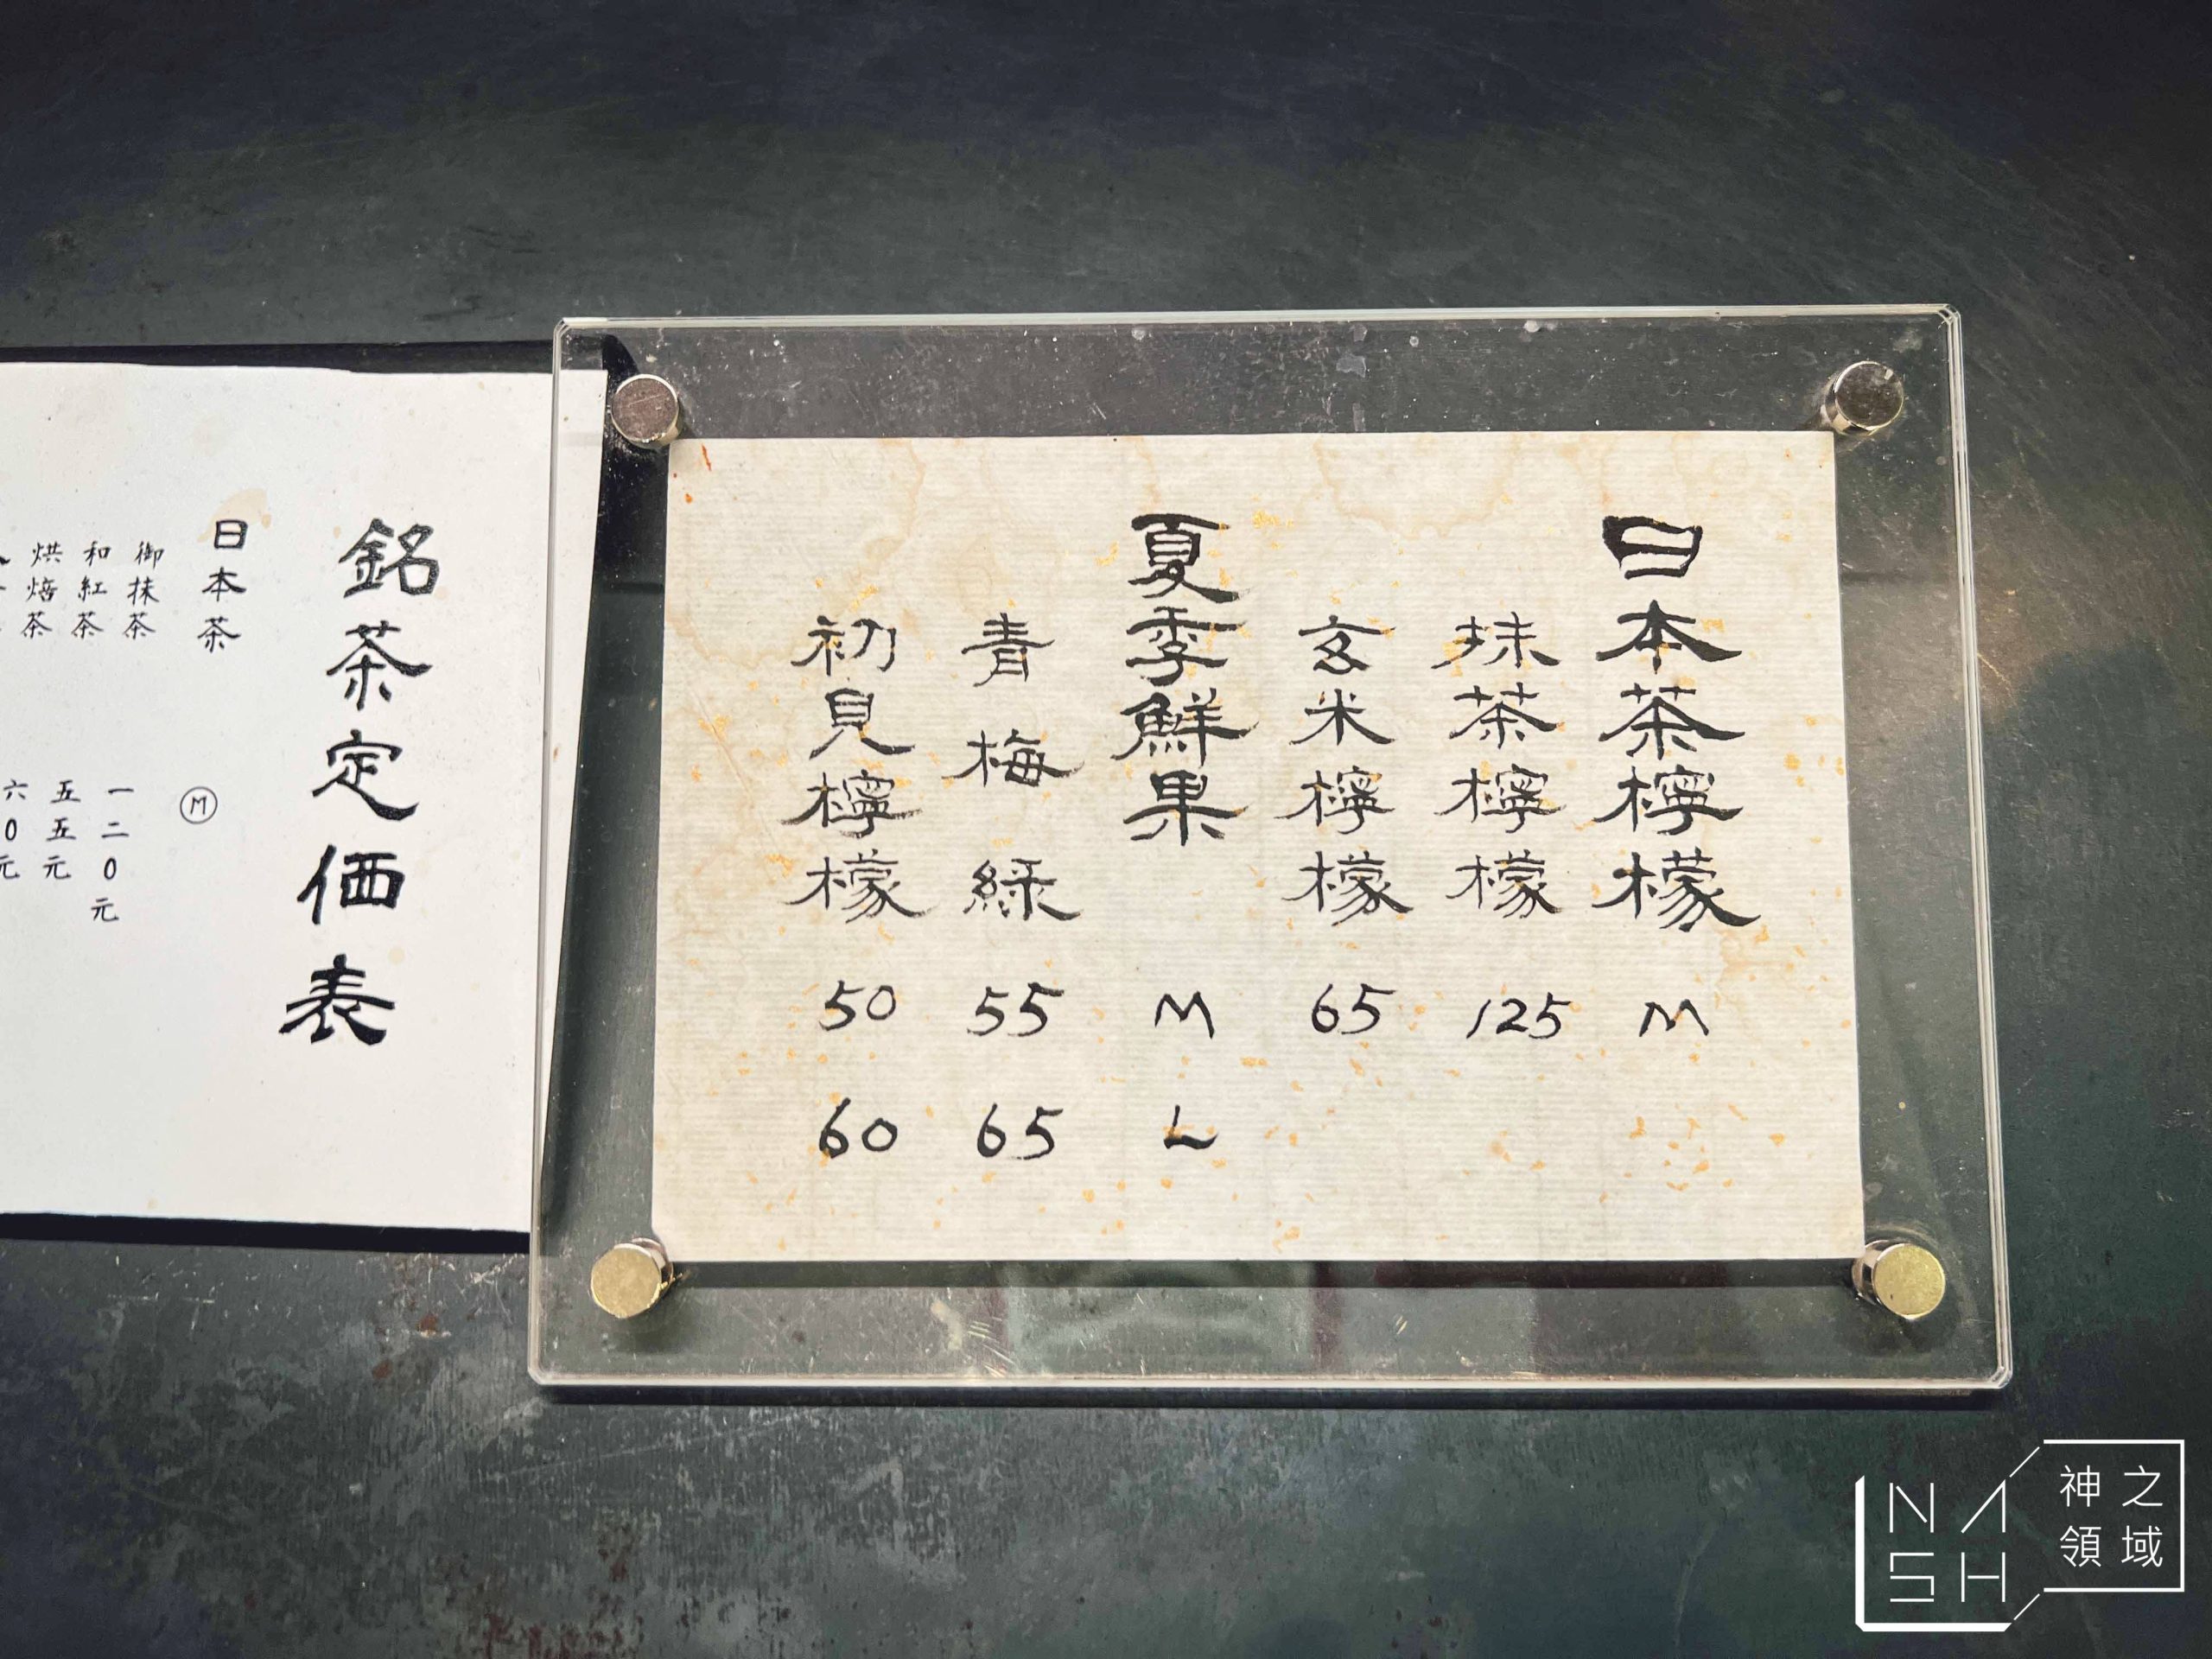 日本茶檸檬 M
抹茶檸檬 125
玄米檸檬 65
夏季鮮果 M L
青梅綠 55 65
初見檸檬 50 60
銘茶定価表
日本茶 M
御抹茶 一二0元
和紅茶 五五元
烘焙茶 六0元
NASH
神之領域